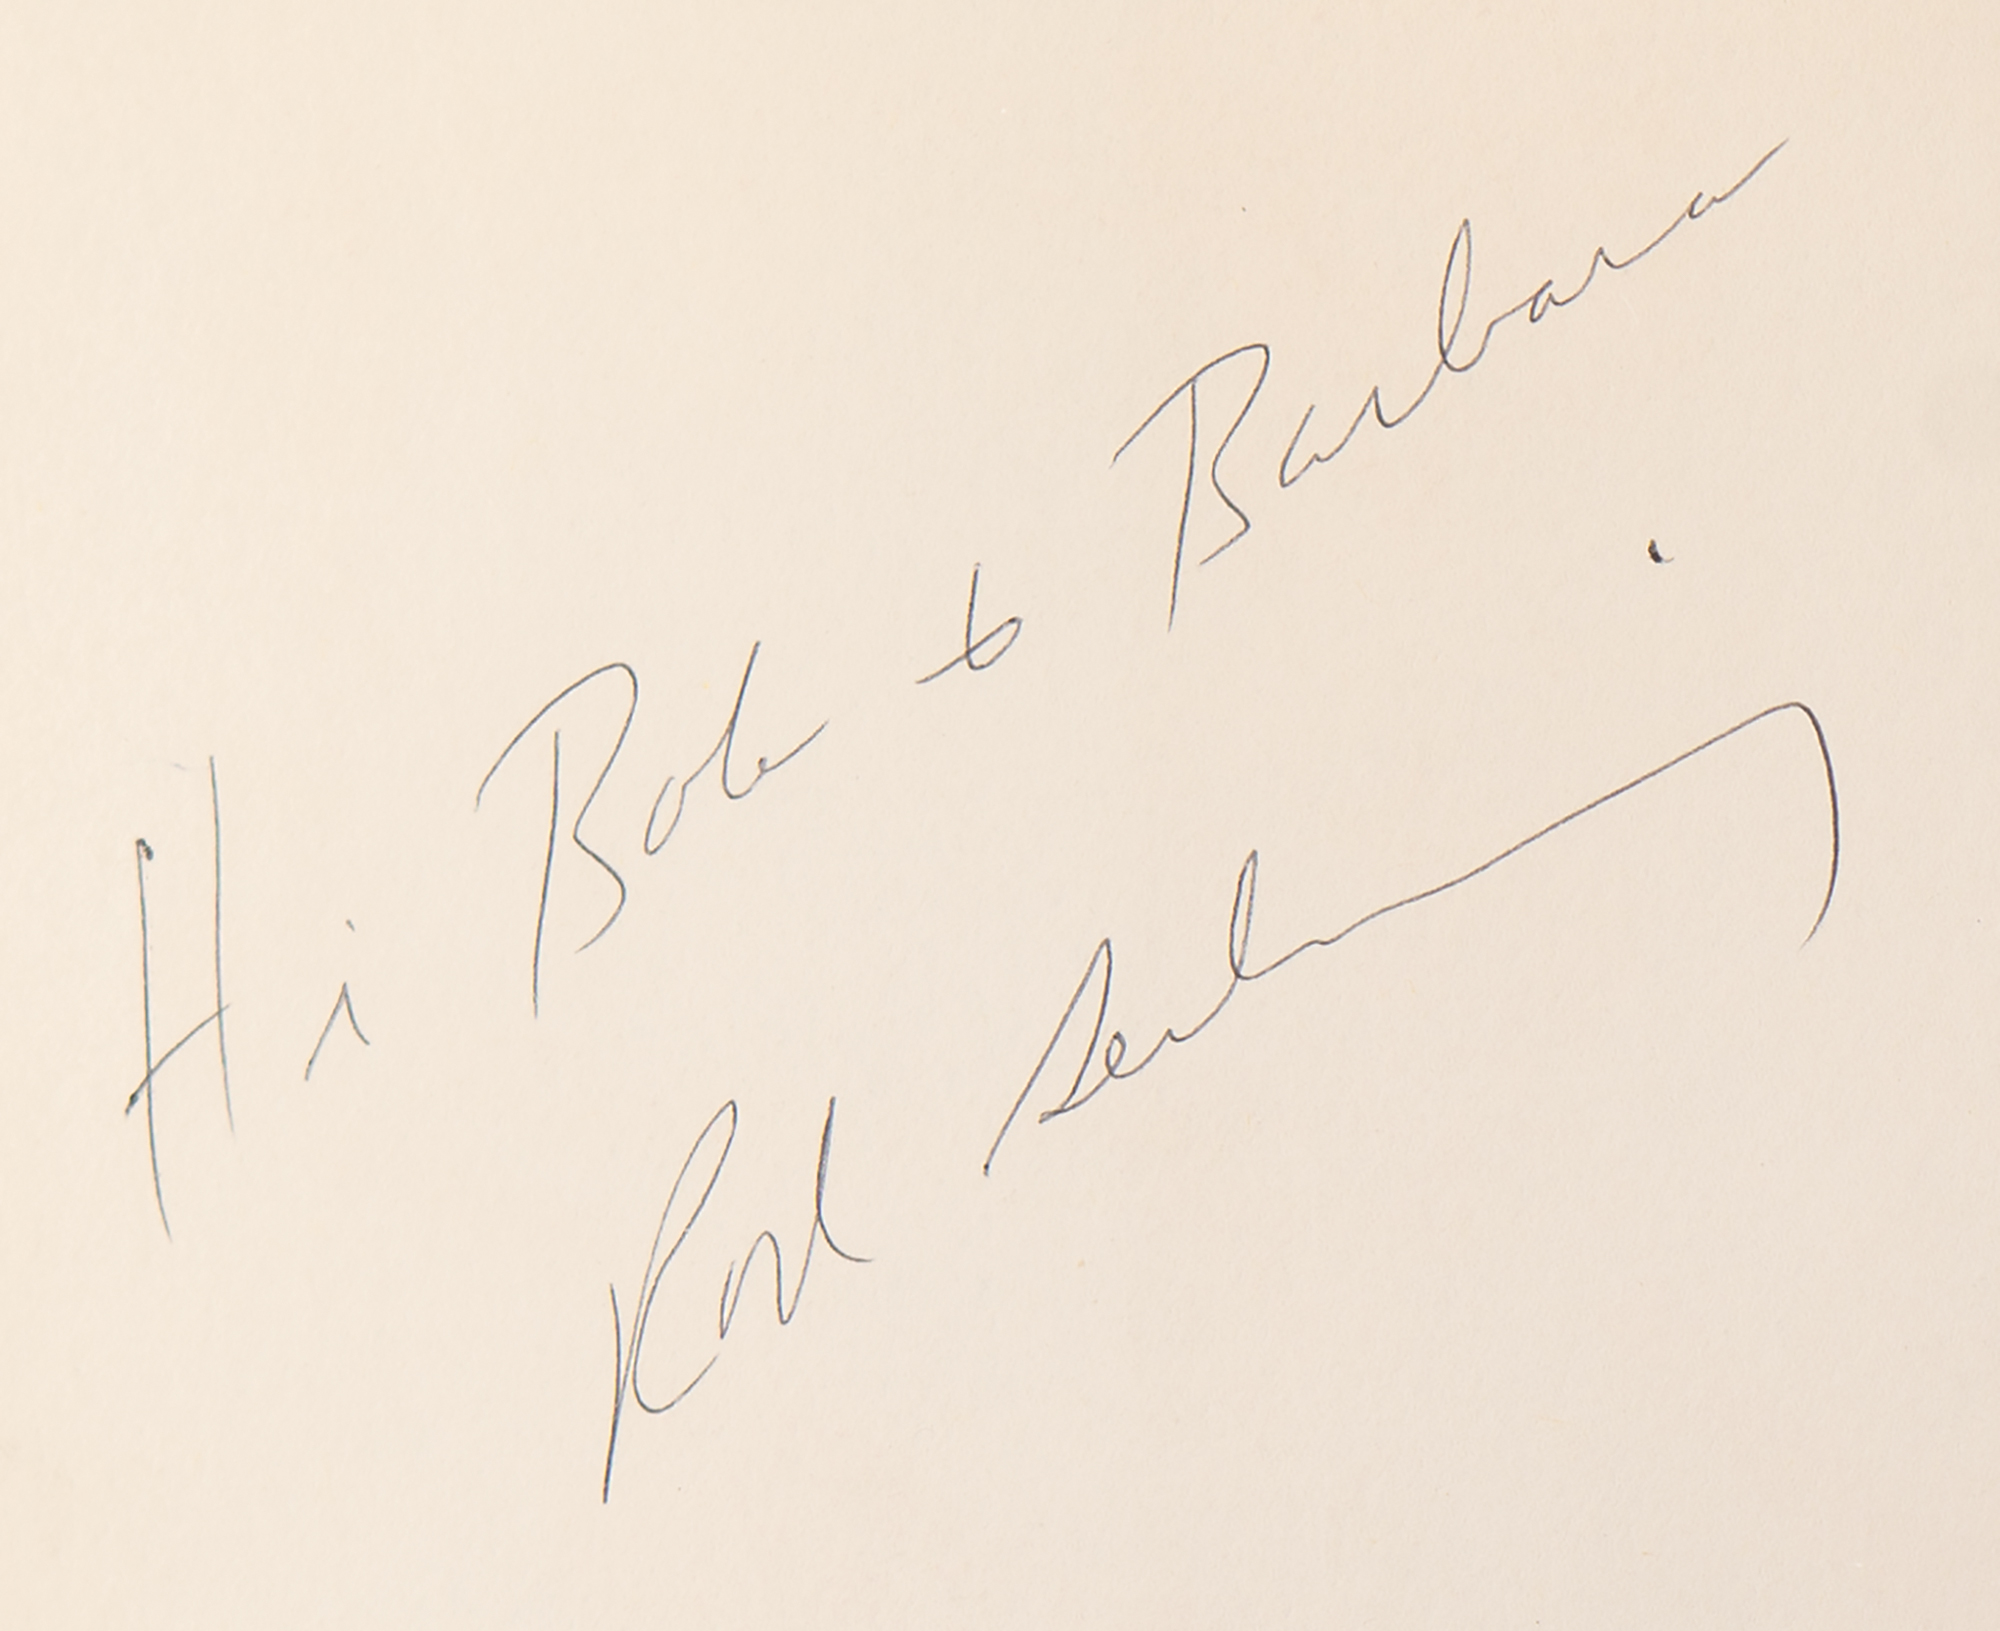 Hi Bob & Barbara
Rod Serling